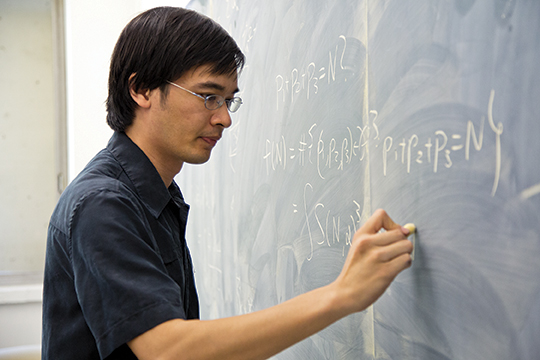 p₁+p₂+p₃=N?
r(N) = #{(p₁,p₂,p₃) : p₁+p₂+p₃=N}
= ∫ S(N,